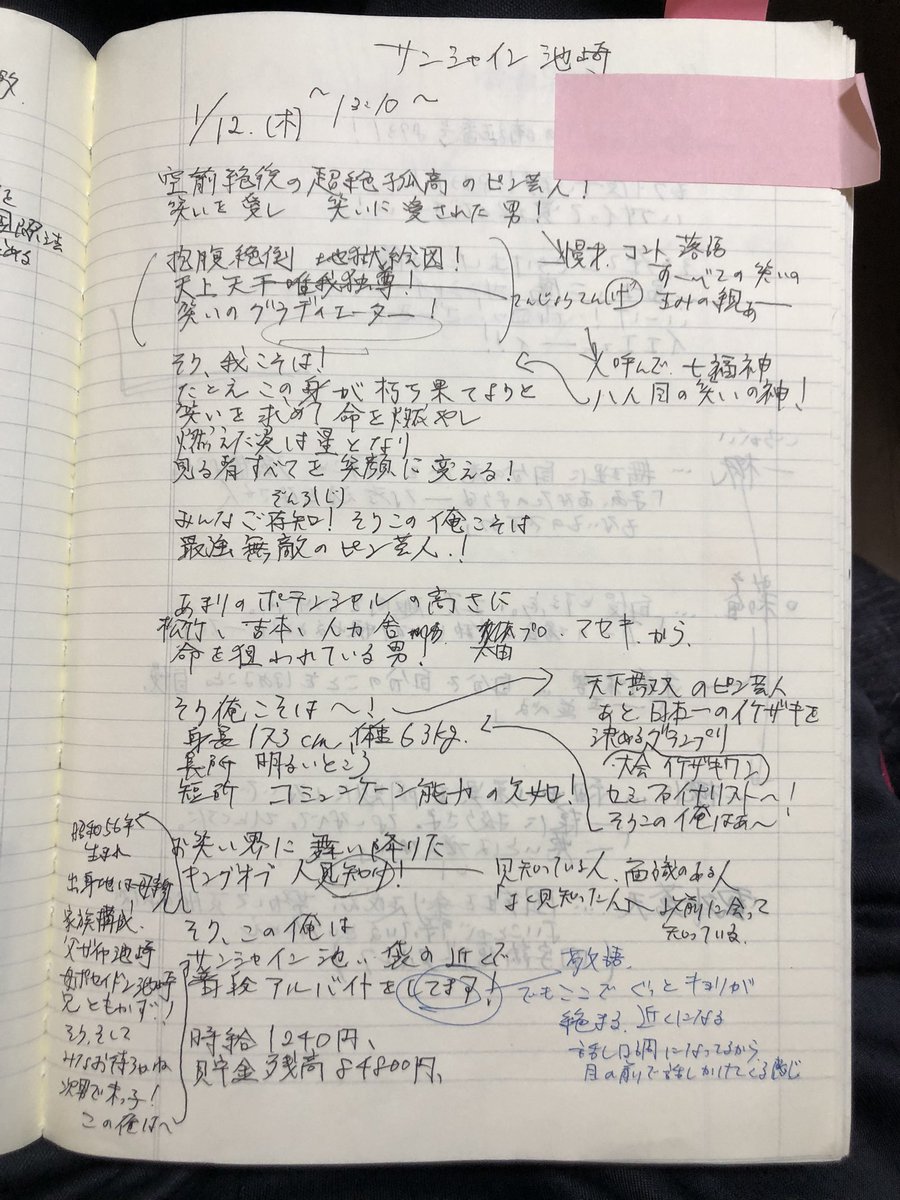 サンシャイン池崎
1/12.(木) ~12:10~
空前絶後の超絶孤高のピン芸人!
笑いを愛し 笑いに愛された男!
抱腹絶倒 地獄絵図!
天上天下唯我独尊!
笑いのグラディエーター!
漫才、コント 落語
すーべての笑いの
生みの親ぁー
てんじょうてんげ
人呼んで、七福神
八人目の笑いの神!
そう、我こそは!
たとえこの身が朽ち果てようと
笑いを求めて命を燃やし
燃えた炎は星となり
見る者すべてを笑顔に変える!
ぞんち(じ)
みんなご存知! そうこの俺こそは
最強無敵のピン芸人!
あまりのポテンシャルの高さに
松竹、吉本、人力舎 太田プロ、マセキから、
命を狙われている男!
そう俺こそは~!
身長173cm 体重63kg.
長所 明るいところ
短所 コミュニケーション能力の欠如!
天下無双のピン芸人
あと日本一のイケザキを
決めるグランプリ
大会 イケザキワン
セミファイナリスト~!
そうこの俺はあ~!
お笑い界に舞い降りた
キングオブ 人見知り!
見知っている人、面識のある人
よく見知った人 以前に会って
知っている。
昭和56年
生まれ
出身地は母親
家族構成!
父ガイア池崎
母ポセイドン池崎
兄ともかず!
そう、そして
みなお待ちかね
次男で末っ子!
この俺は~
そう、この俺は
サンシャイン池崎 池袋の近くで
普段アルバイトをしてます!
敬語
でもここでぐっとキョリが
縮まる、近くになる
話し口調になってるから、
目の前で話しかけてくる感じ
時給1240円、
貯金残高84800円、